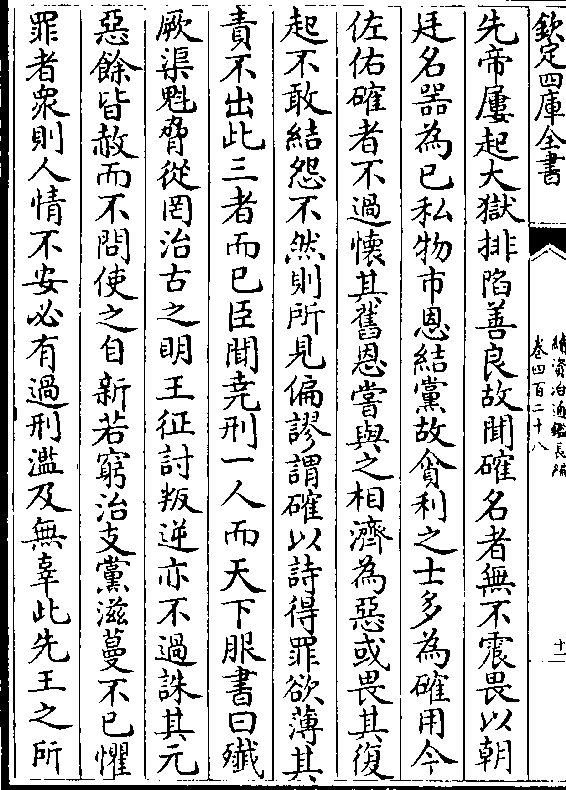 欽定四庫全書
續資治通鑑長編
卷四百二十八
十一
先帝屢起大獄排陷善良故聞確名者無不震畏以朝
廷名器為已私物市恩結黨故貪利之士多為確用今
佐佑確者不過懷其舊恩嘗與之相濟為惡或畏其復
起不敢結怨不然則所見偏謬謂確以詩得罪欲薄其
責不出此三者而已臣聞堯刑一人而天下服書曰殲
厥渠魁脅從罔治古之明王征討叛逆亦不過誅其元
惡餘皆赦而不問使之自新若窮治支黨滋蔓不已懼
罪者衆則人情不安必有過刑濫及無辜此先王之所